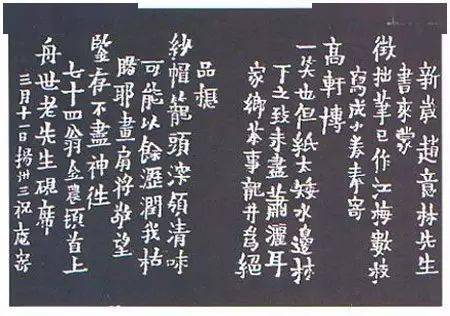 新歲趙意林先生
書來蒙
徵拙筆已作江梅數枝
寫成小券奉寄
高軒博
一笑也但紙太矮水邊林
下之致未盡蕭灑耳
家鄉茶事龍井爲絕
品擬
紗帽籠頭深領清味
可能以餘瀝潤我枯
腸耶畫扇將發望
鑒存不盡神徃
七十四翁金農頓首上
舟世老先生硯席
三月十一日揚州三祝庵寄